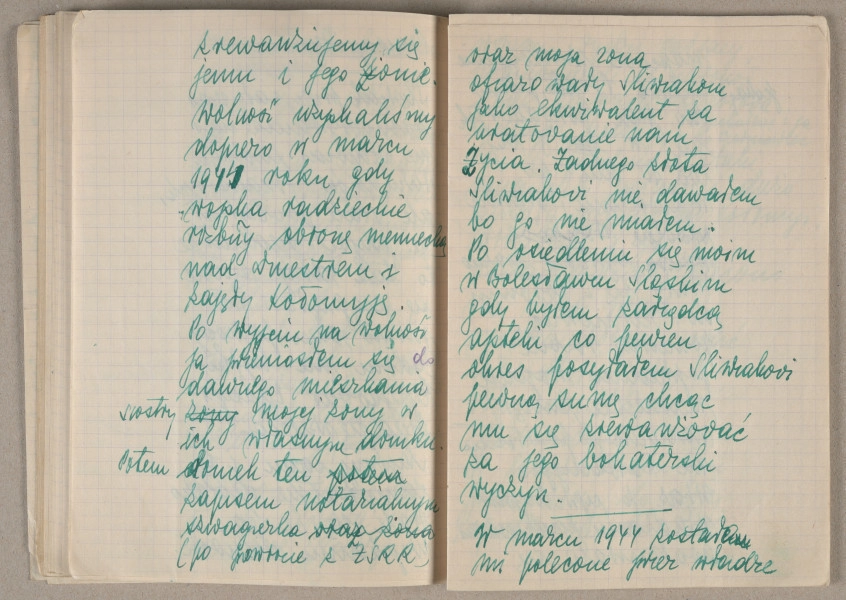 zrewanżujemy się
jemu i jego żonie.
Wolność uzyskaliśmy
dopiero w marcu
1944 roku gdy
wojska radzieckie
rozbiły obronę niemiecką
nad Dniestrem i
zajęły Kołomyję.
Po wyjściu na wolność
ja przeniosłem się do
dawnego mieszkania
siostry żony mojej żony w
ich własnym domku.
Potem domek ten potem
zapisem notarialnym
szwagierka oraz żona
(po powrocie z ZSRR)
oraz moja żona
ofiarowały Śliwiakom
jako ekwiwalent za
uratowanie nam
Życia. Żadnego złota
Śliwiakowi nie dawałem
bo go nie miałem.
Po osiedleniu się moim
w Bolesławcu Śląskim
gdy byłem zarządcą
apteki co pewien
okres posyłałem Śliwiakowi
pewną sumę chcąc
mu się zrewanżować
za jego bohaterski
wyczyn.
W marcu 1944
mi polecone przez władze